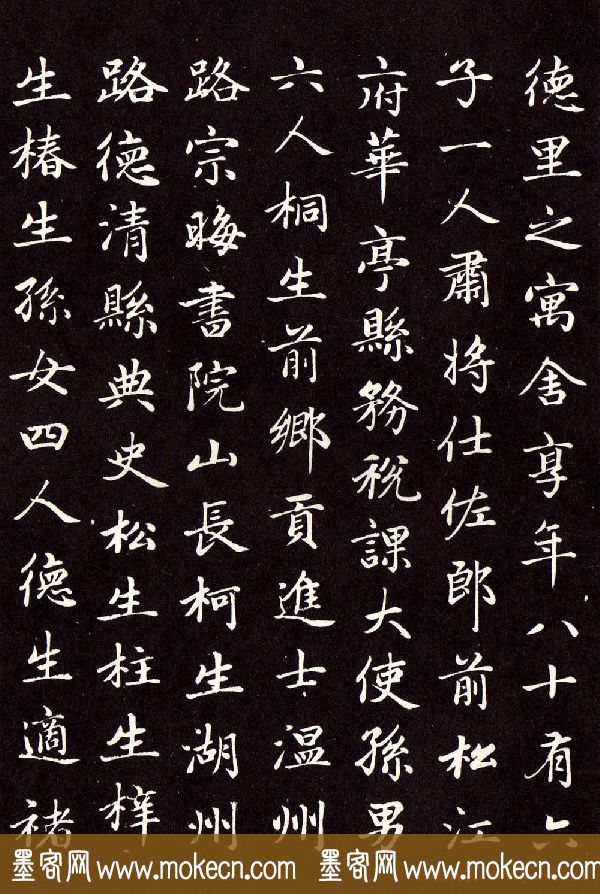 德里之寓舍享年八十有六
子一人肅将仕佐郎前松江
府華亭縣務稅課大使孫男
六人桐生前鄉貢進士温州
路宗晦書院山長柯生湖州
路德清縣典史松生柱生梓
生椿生孫女四人德生適褚
墨客网 www.mokecn.com 墨客网 www.mokecn.com